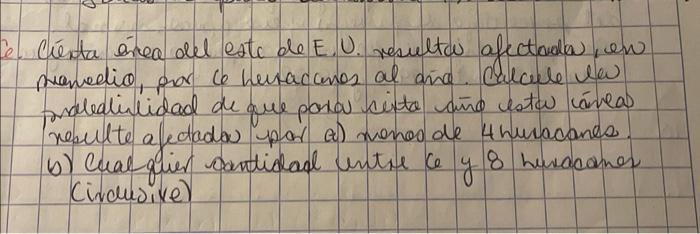 Cierta área del este de E.U. resulta afectada, en
promedio, por 6 huracanes al año. Calcule la
probabilidad de que para cierto año esta área
resulte afectada por a) menos de 4 huracanes.
b) Cualquier cantidad entre 6 y 8 huracanes
(inclusive)